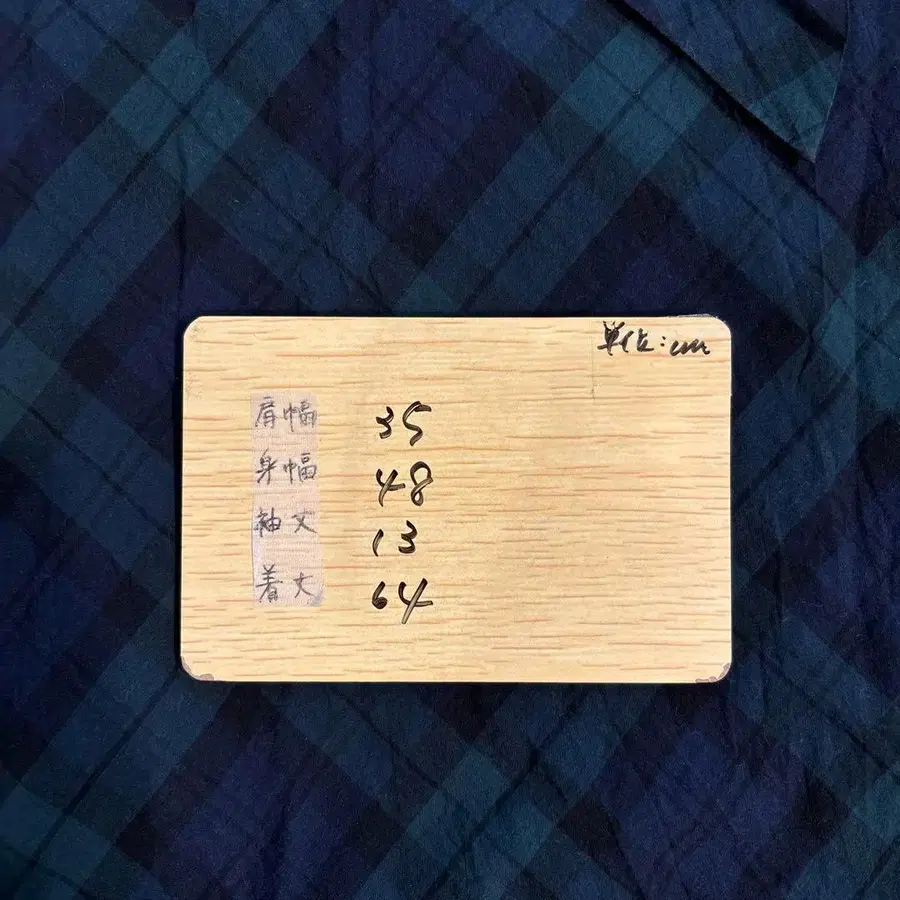 単位:cm
肩幅 35
身幅 48
袖丈 13
着丈 64